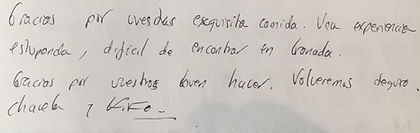 Gracias por vuestra exquisita comida. Una experiencia
estupenda, dificil de encontrar en Granada.
Gracias por vuestro buen hacer. Volveremos seguro.
Chacela y Kiko